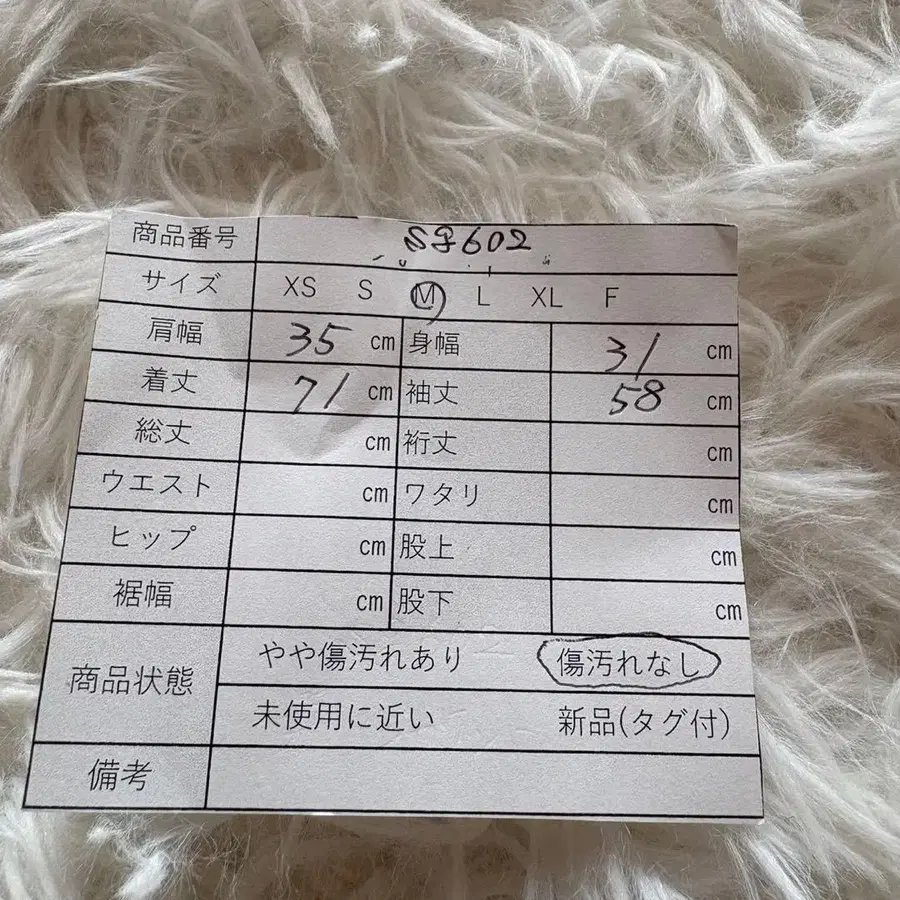 商品番号 SG602
サイズ XS S M L XL F
肩幅 35 cm 身幅 31 cm
着丈 71 cm 袖丈 58 cm
総丈 cm 裄丈 cm
ウエスト cm ワタリ cm
ヒップ cm 股上 cm
裾幅 cm 股下 cm
商品状態 やや傷汚れあり 傷汚れなし
未使用に近い 新品(タグ付)
備考